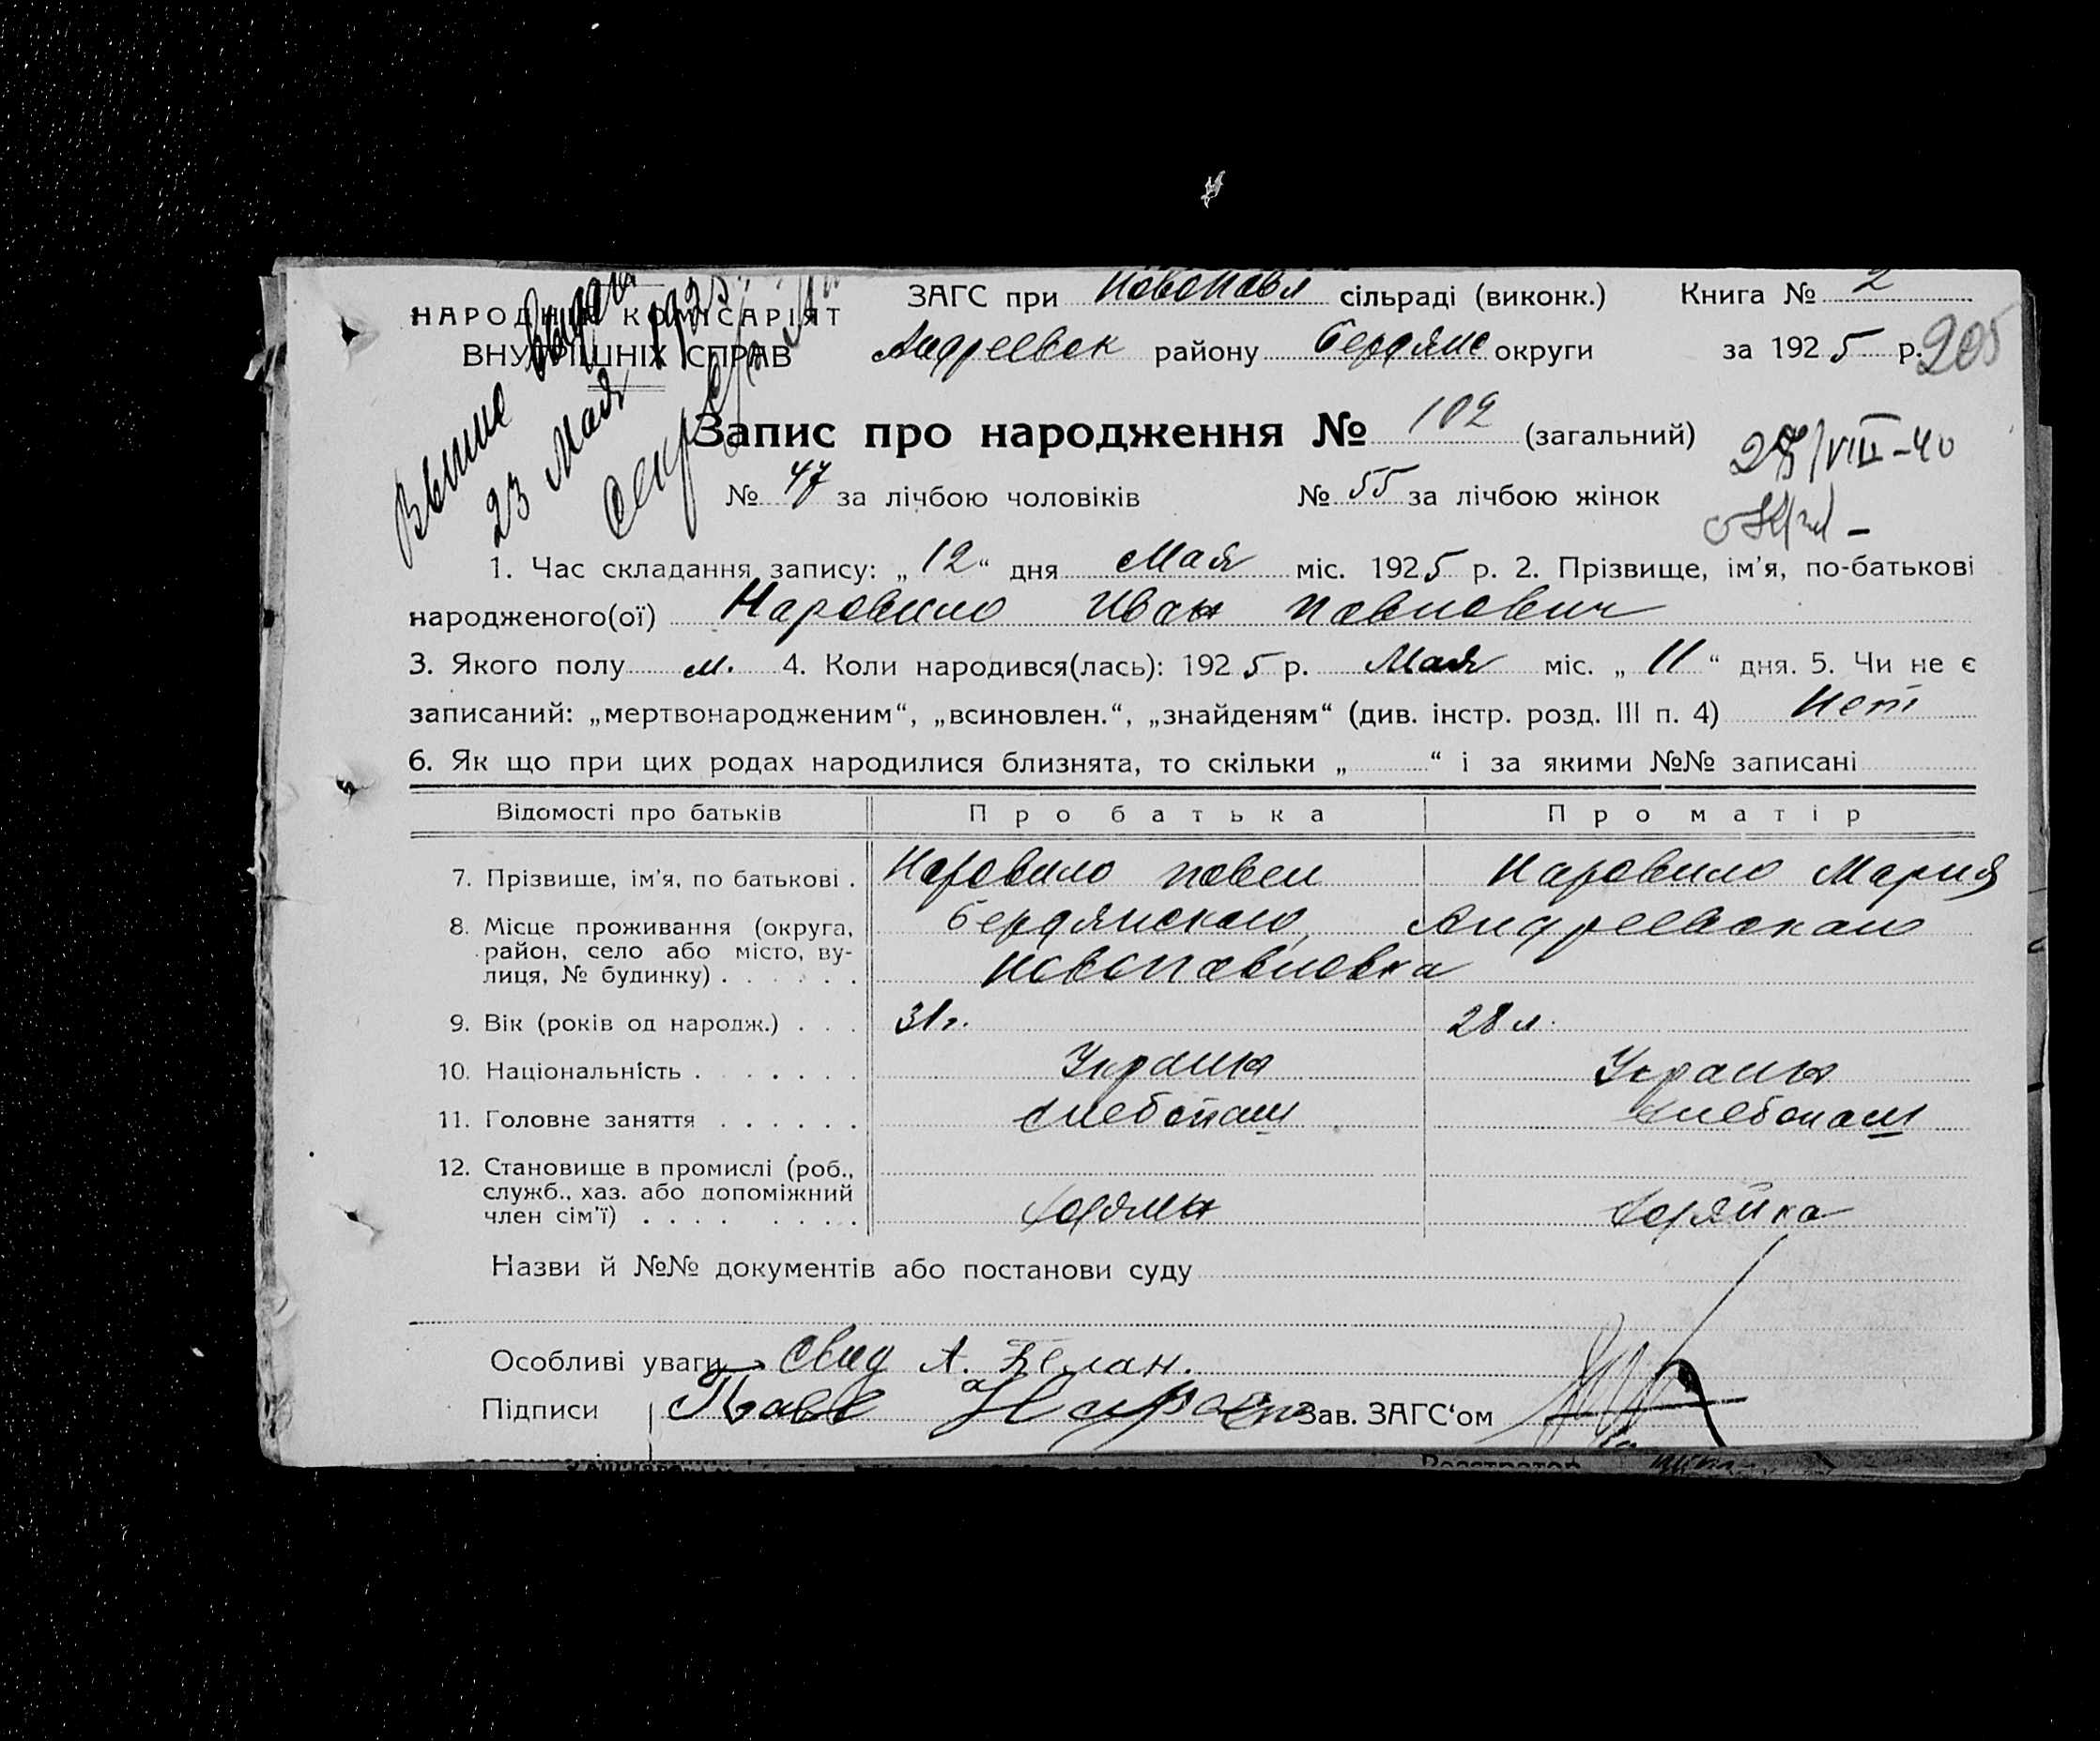 НАРОДНИЙ КОМІСАРІЯТ
ВНУТРІШНІХ СПРАВ
ЗАГС при Новопавл сільраді (виконк.) Книга № 2
Андреевск району Бердянс округи за 1925 р. 205
Выпис выдан
23 Мая 1925
Секр
Запис про народження № 102 (загальний)
28/VIII-40
№ 47 за лічбою чоловіків № 55 за лічбою жінок
1. Час складання запису: „12“ дня Мая міс. 1925 р. 2. Прізвище, ім'я, по-батькові
народженого(ої) Наровило Иван Павлович
3. Якого полу м. 4. Коли народився(лась): 1925 р. Мая міс. „11“ дня. 5. Чи не є
записаний: „мертвонародженим“, „всиновлен.“, „знайденям“ (див. інстр. розд. III п. 4) Нет
6. Як що при цих родах народилися близнята, то скільки „ “ і за якими №№ записані
Відомості про батьків Про батька Про матір
7. Прізвище, ім'я, по батькові . Наровило Павел Наровило Мария
8. Місце проживання (округа, район, село або місто, вулиця, № будинку) . . . . . . Бердянского, Андреевского
Новопавловка
9. Вік (років од народж.) . . . 31 г. 28 л.
10. Національність . . . . . . Украин Украин
11. Головне заняття . . . . . . хлебопаш хлебопаш
12. Становище в промислі (роб., служб., хаз. або допоміжний член сім'ї) . . . . . . . . хозяин хозяйка
Назви й №№ документів або постанови суду
Особливі уваги Свид А. Белан.
Підписи Павел Зав. ЗАГС'ом
Реєстратор